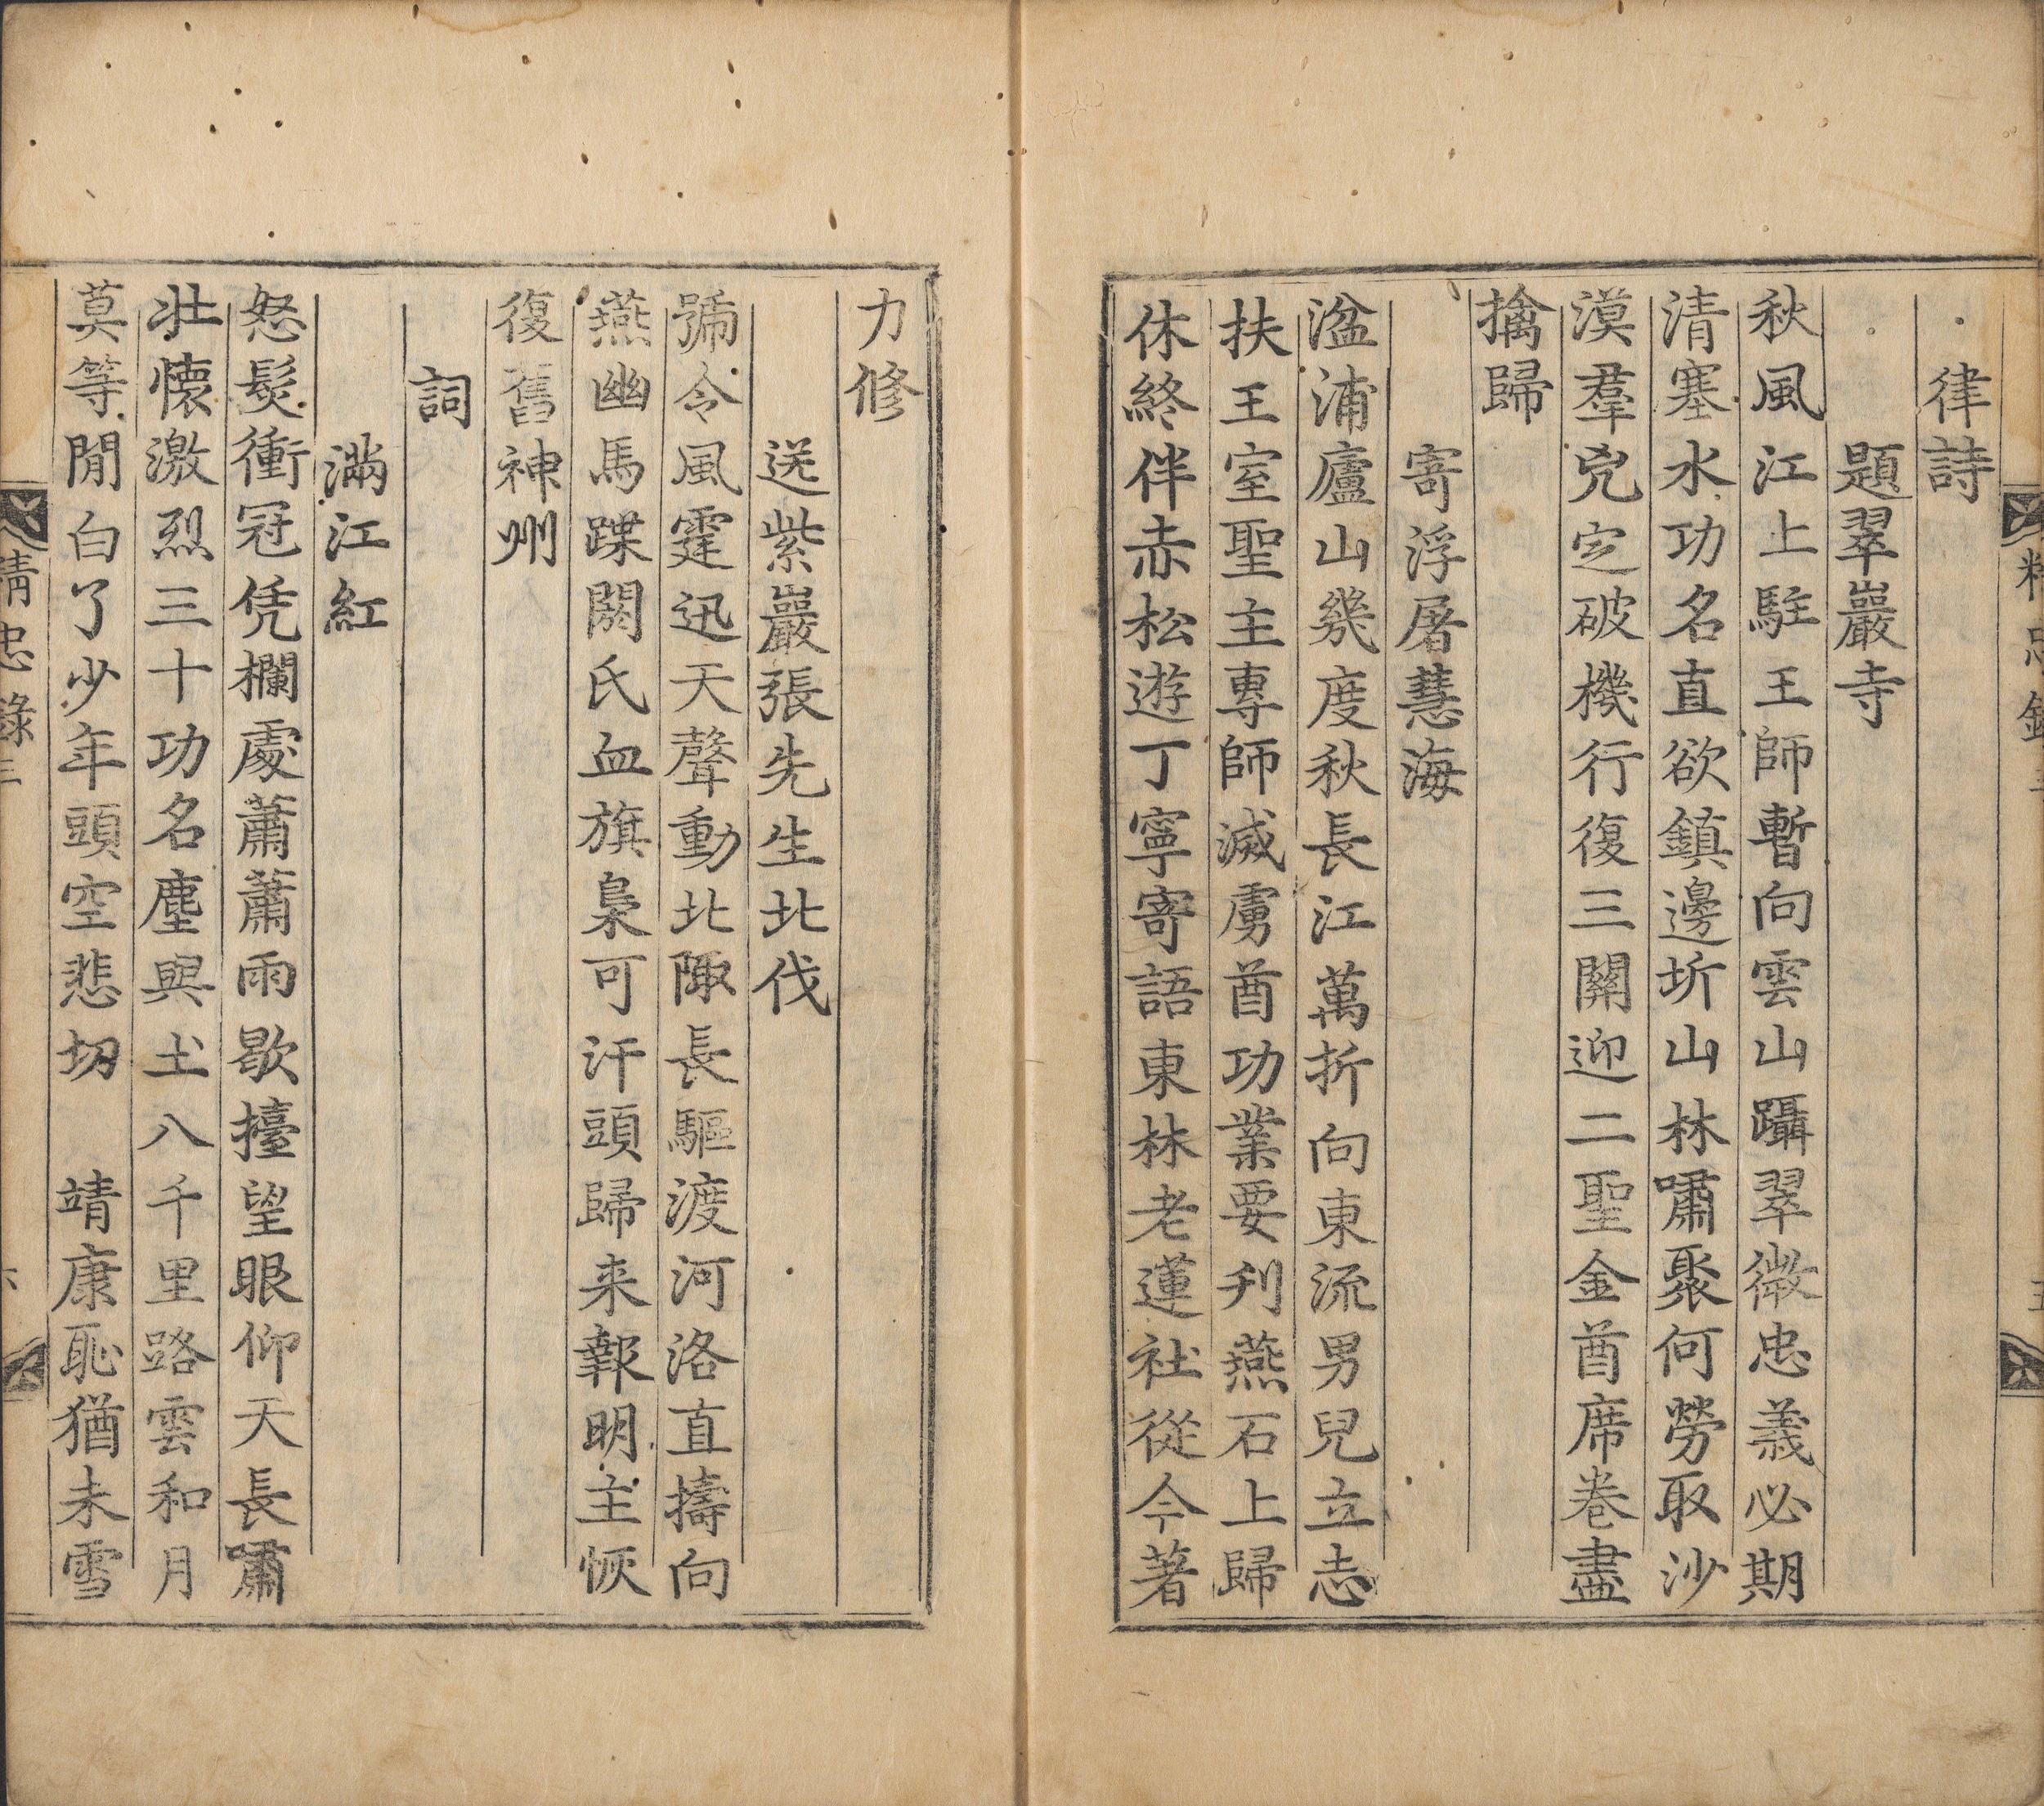 律詩
題翠巖寺
秋風江上駐王師暫向雲山躡翠微忠義必期
清塞水功名直欲鎮邊圻山林嘯聚何勞取沙
漠羣兇定破機行復三關迎二聖金酋席卷盡
擒歸
寄浮屠慧海
湓浦廬山幾度秋長江萬折向東流男兒立志
扶王室聖主專師滅虜酋功業要刋燕石上歸
休終伴赤松遊丁寧寄語東林老蓮社從今著
力修
送紫巖張先生北伐
號令風霆迅天聲動北陬長驅渡河洛直擣向
燕幽馬蹀閼氏血旗梟可汗頭歸来報明主恢
復舊神州
詞
滿江紅
怒髮衝冠凭欄處蕭蕭雨歇擡望眼仰天長嘯
壯懷激烈三十功名塵與土八千里路雲和月
莫等閒白了少年頭空悲切　靖康恥猶未雪
精忠錄三
六